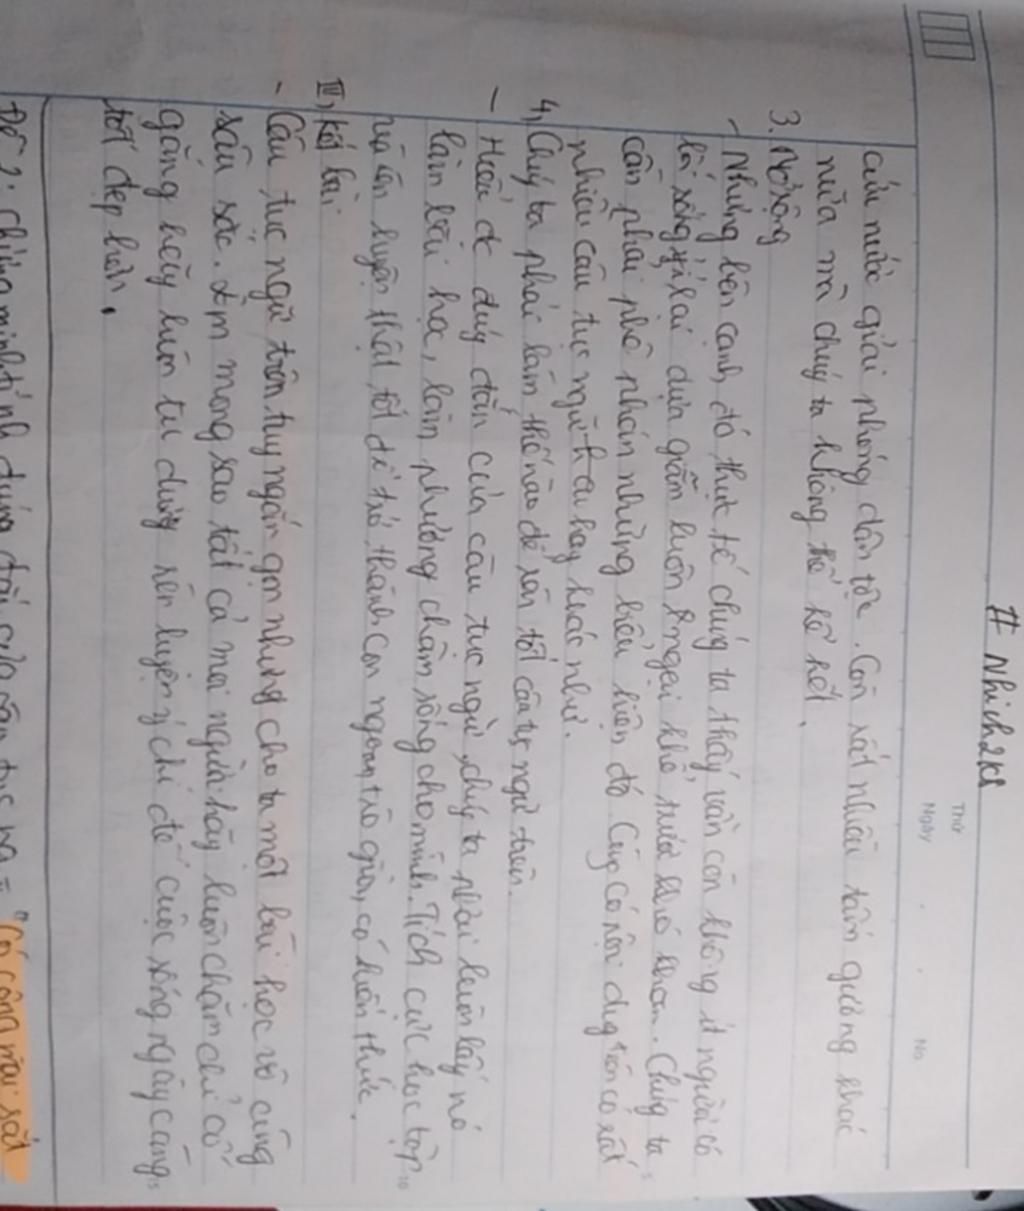 # Nhich2k8
Thứ
Ngày . . No
cứu nước giải phóng dân tộc. Còn rất nhiều tấm gương khác
nữa mà chúng ta không thể kể hết.
3. Mở rộng
- Nhưng bên cạnh đó thực tế chúng ta thấy vẫn còn không ít người có
lối sống ỷ lại dựa dẫm luôn ngại khổ trước khó khăn. Chúng ta
cần phải phê phán những biểu hiện đó. Cùng có nội dung trên có rất
nhiều câu tục ngữ hay khác như.
4, Chúng ta phải làm thế nào để làm tốt câu tục ngữ trên.
- Hiểu đc đúng đắn của câu tục ngữ, chúng ta phải luôn lấy nó
làm bài học, làm phương châm sống cho mình. Tích cực học tập
và rèn luyện thật tốt để trở thành con ngoan, trò giỏi, có kiến thức.
III, Kết bài
- Câu tục ngữ trên tuy ngắn gọn nhưng cho ta một bài học vô cùng
sâu sắc. Em mong sao tất cả mọi người hãy luôn chăm chỉ cố
gắng hãy luôn tu dưỡng rèn luyện ý chí để cuộc sống ngày càng
tốt đẹp hơn.
Đề 2: chứng minh tính đúng đắn của câu tục ngữ "Có công mài sắt